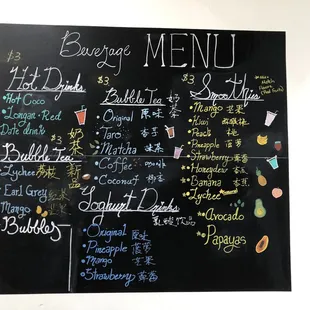 Beverage MENU
$3
Hot Drinks
• Hot Coco
• Longan-Red
Date drink
$3
Bubble Tea
• Lychee
• Earl Grey
• Mango
Bubbles
$3
Bubble Tea 奶茶
• Original 原味
• Taro 香芋
• Matcha 抹茶
• Coffee
• Coconut 椰香
Yoghurt Drinks
• Original 原味
• Pineapple 菠萝
• Mango 芒果
• Strawberry 草莓
$3
Smoothies
• Mango 芒果
• Kiwi
• Peach
• Pineapple 菠萝
• Strawberry 草莓
• Honeydew
• Banana 香蕉
• Lychee
• Avocado
• Papayas